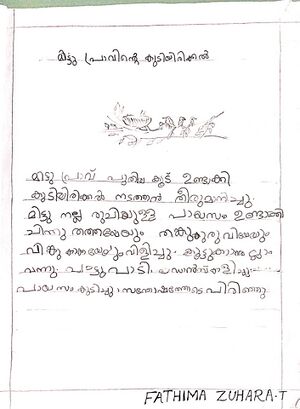 മിട്ടു പ്രാവിന്റെ കുടിയിരിക്കൽ
മിട്ടു പ്രാവ് പുതിയ കൂട് ഉണ്ടാക്കി
കുടിയിരിക്കൽ നടത്താൻ തീരുമാനിച്ചു.
മിട്ടു നല്ല രുചിയുള്ള പായസം ഉണ്ടാക്കി
ചിന്നു തത്തയേയും തങ്കു കുരുവിയേയും
വിങ്കു കാക്കയേയും വിളിച്ചു. കൂട്ടുകാരെല്ലാം
വന്നു. പാട്ടു പാടി. ഡാൻസ് കളിച്ചു.
പായസം കുടിച്ചു. സന്തോഷത്തോടെ പിരിഞ്ഞു
FATHIMA ZUHARA.T